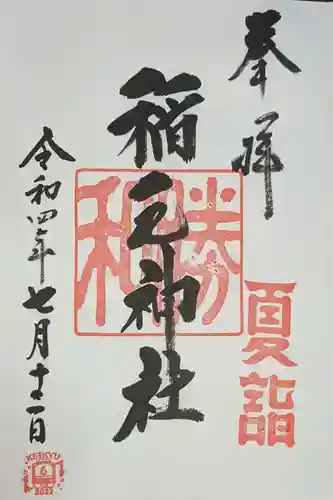 奉拝
夏詣
稲毛神社
勝
和
令和四年七月十二日
KEIKYU
6
2022